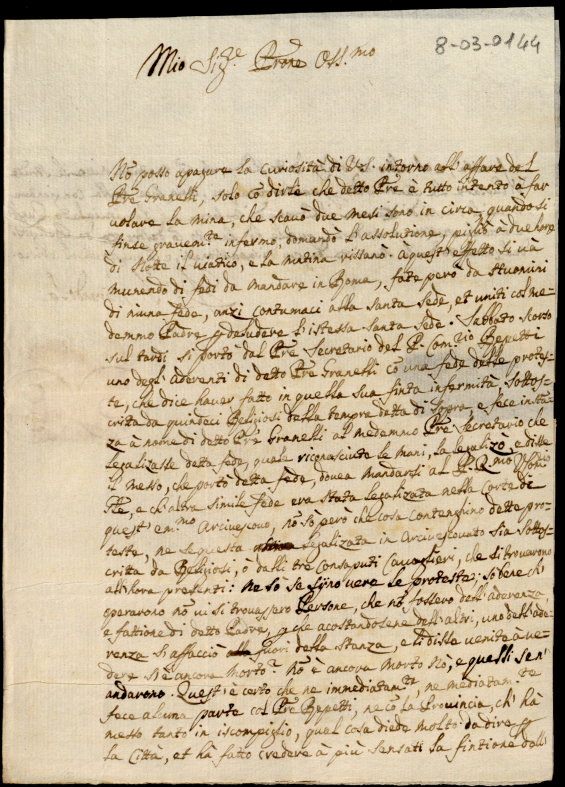 8-03-0144
Mio Sig.re Prone Oss.mo
Nõ posso apagare la curiosità di V.S. intorno all'affare del
Pre Granelli, solo cõ dirle che detto Pre è tutto intento à far
volare la mina, che scavò due mesi sono in circa, quando si
finse gravem.te infermo, domandò l'assoluzione, pigliò à due hore
di Notte il Viatico, e la mattina rissanò. A quest'effetto si và
munendo di fedi da mandare in Roma, fate però da st'uomini
di niuna fede, anzi contumaci alla Santa Sede, et uniti col me-
demmo Padre p deludere l'istessa Santa Sede. Sabbato scorso
sul tardi si portò dal Pre Secretario del P. Com.rio Bepetti
uno degl'aderenti di detto Pre Granelli cõ una fede delle protes-
te, che dice haver fatto in quella sua finta infermità, sottos-
critta da quindeci Religiosi della tempre detta di sopra, e fece instã-
za à nome di detto Pre Granelli al medemmo Pre Secretario che
legalizasse detta fede, quale riconosciute le mani, la legalizò, e disse
il messo, che portò detta fede, dovea mandarsi al P.
Gte, e ch'altra simile fede era stata legalizata nella Corte di
quest'em.mo Arcivescovo, nõ sò però che cosa contenghino dette pro-
teste, ne se questa legalizata in Arcivescovato sia sottos-
critta da Religiosi, o dalli tre consaputi Cavaglieri, che si trovarono
all'hora presenti: ne sò se sijno vere le proteste; sò bene ch'
operarono nõ vi si trovassero Persone, che nõ fossero dell'aderenza,
e fattione di detto Padre, p che acostandosene dell'altri, uno dell'ade-
renza si affacciò fuori della stanza, e li disse venite à ve-
dere s'è ancora morto? Nõ è ancora morto nò, e quelli se n'
andarono. Quest'è certo che ne immediatam.te, ne mediatam.te
fece alcuna parte col Pre Bepetti, ne cõ la Provincia, ch'hà
messo tanto in iscompiglio, qual cosa diede molto da dire p
la Città, et hà fatto credere à più sensati la fintione dell'